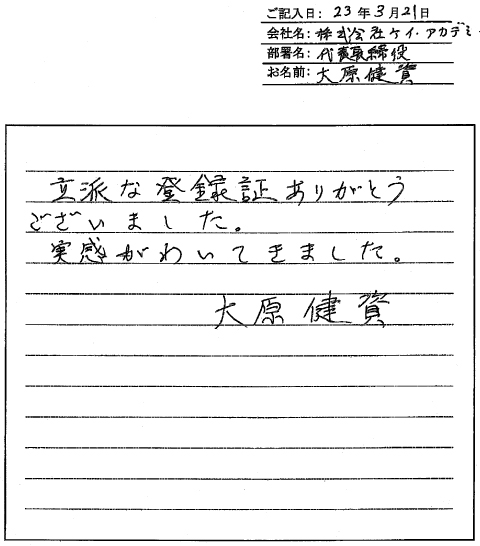 ご記入日: 23年3月21日
会社名: 株式会社ケイ・アカデミー
部署名: 代表取締役
お名前: 大原健資
立派な登録証ありがとう
ございました。
実感がわいてきました。
大原健資